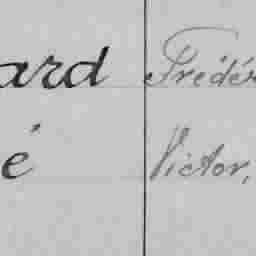 ard Frédér
é Victor,